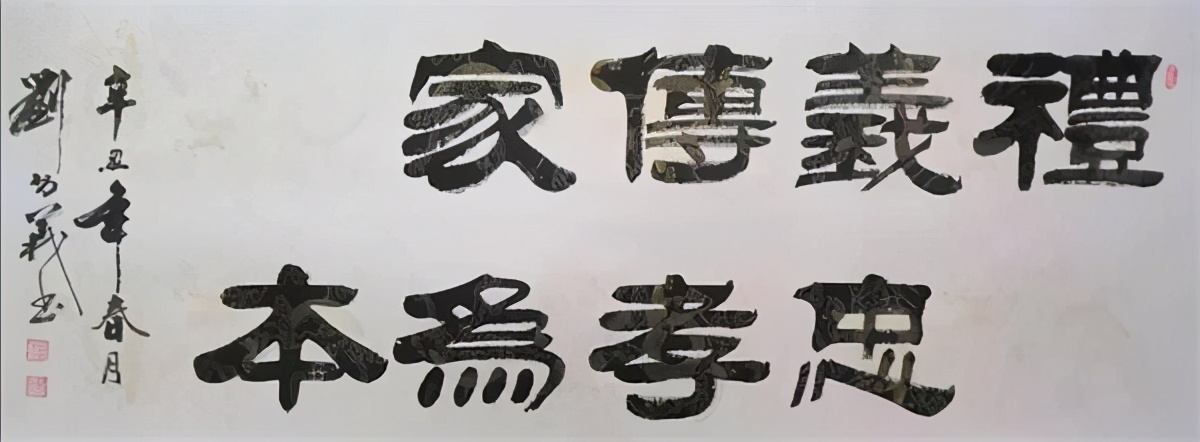 禮義傳家
忠孝為本
辛丑年春月
劉公義書